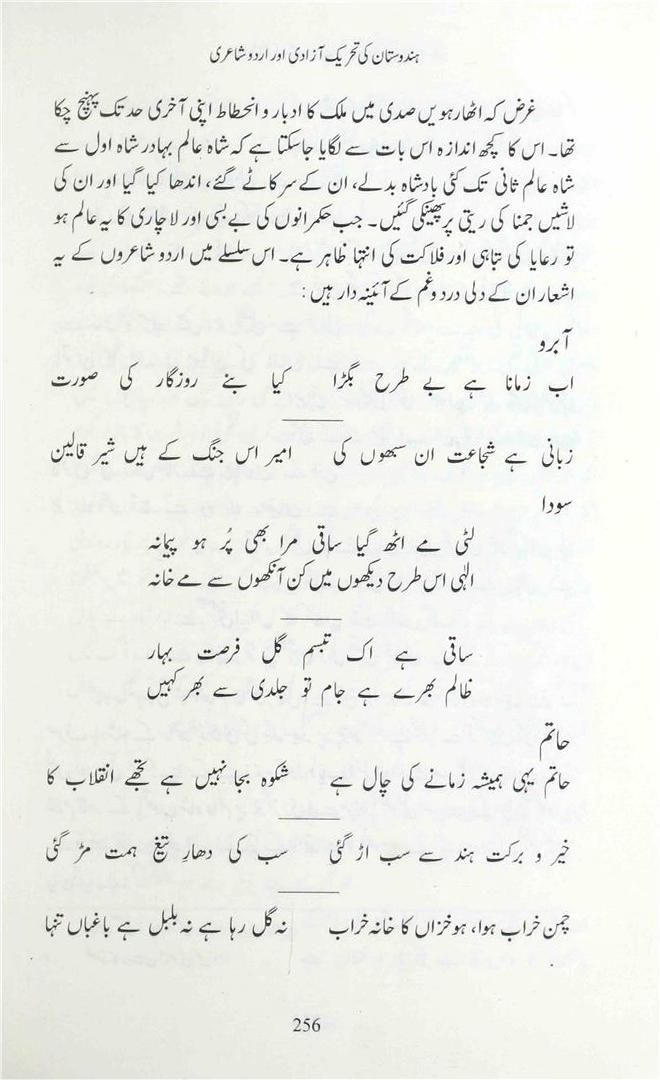 ہندوستان کی تحریک آزادی اور اردو شاعری
غرض کہ اٹھارہویں صدی میں ملک کا ادبار و انحطاط اپنی آخری حد تک پہنچ چکا
تھا۔ اس کا کچھ اندازہ اس بات سے لگایا جاسکتا ہے کہ شاہ عالم بہادر شاہ اول سے
شاہ عالم ثانی تک کئی بادشاہ بدلے، ان کے سر کاٹے گئے، اندھا کیا گیا اور ان کی
لاشیں جمنا کی ریتی پر پھینکی گئیں۔ جب حکمرانوں کی بے بسی اور لاچاری کا یہ عالم ہو
تو رعایا کی تباہی اور فلاکت کی انتہا ظاہر ہے۔ اس سلسلے میں اردو شاعروں کے یہ
اشعار ان کے دلی درد و غم کے آئینہ دار ہیں:
آبرو
اب زمانا ہے بے طرح بگڑا کیا بنے روزگار کی صورت
زبانی ہے شجاعت ان سبھوں کی امیر اس جنگ کے ہیں شیر قالین
سودا
لٹی مے اٹھ گیا ساقی مرا بھی پُر ہو پیمانہ
الٰہی اس طرح دیکھوں میں کن آنکھوں سے مے خانہ
ساقی ہے اک تبسم گل فرصت بہار
ظالم بھرے ہے جام تو جلدی سے بھر کہیں
حاتم
حاتم یہی ہمیشہ زمانے کی چال ہے شکوہ بجا نہیں ہے تجھے انقلاب کا
خیر و برکت ہند سے سب اڑ گئی سب کی دھارِ تیغ ہمت مڑ گئی
چمن خراب ہوا، ہو خزاں کا خانہ خراب نہ گل رہا ہے نہ بلبل ہے باغباں تنہا
256